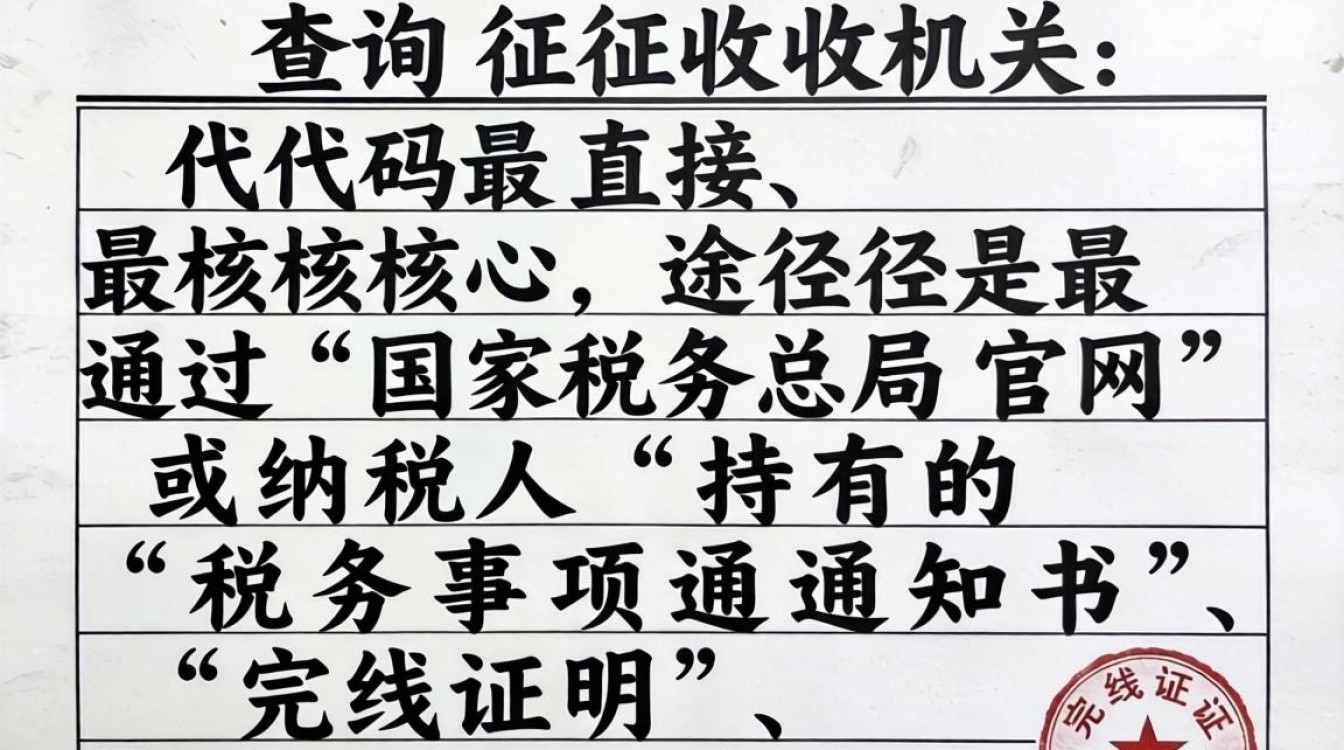 查询 征征收收机关：
代代码最 直接、
最核核核心，途径径是最
通过“国家税务总局 官网”
或纳税人“持有的
“税务事项通通知书”、
“完线证明”、
完线证证